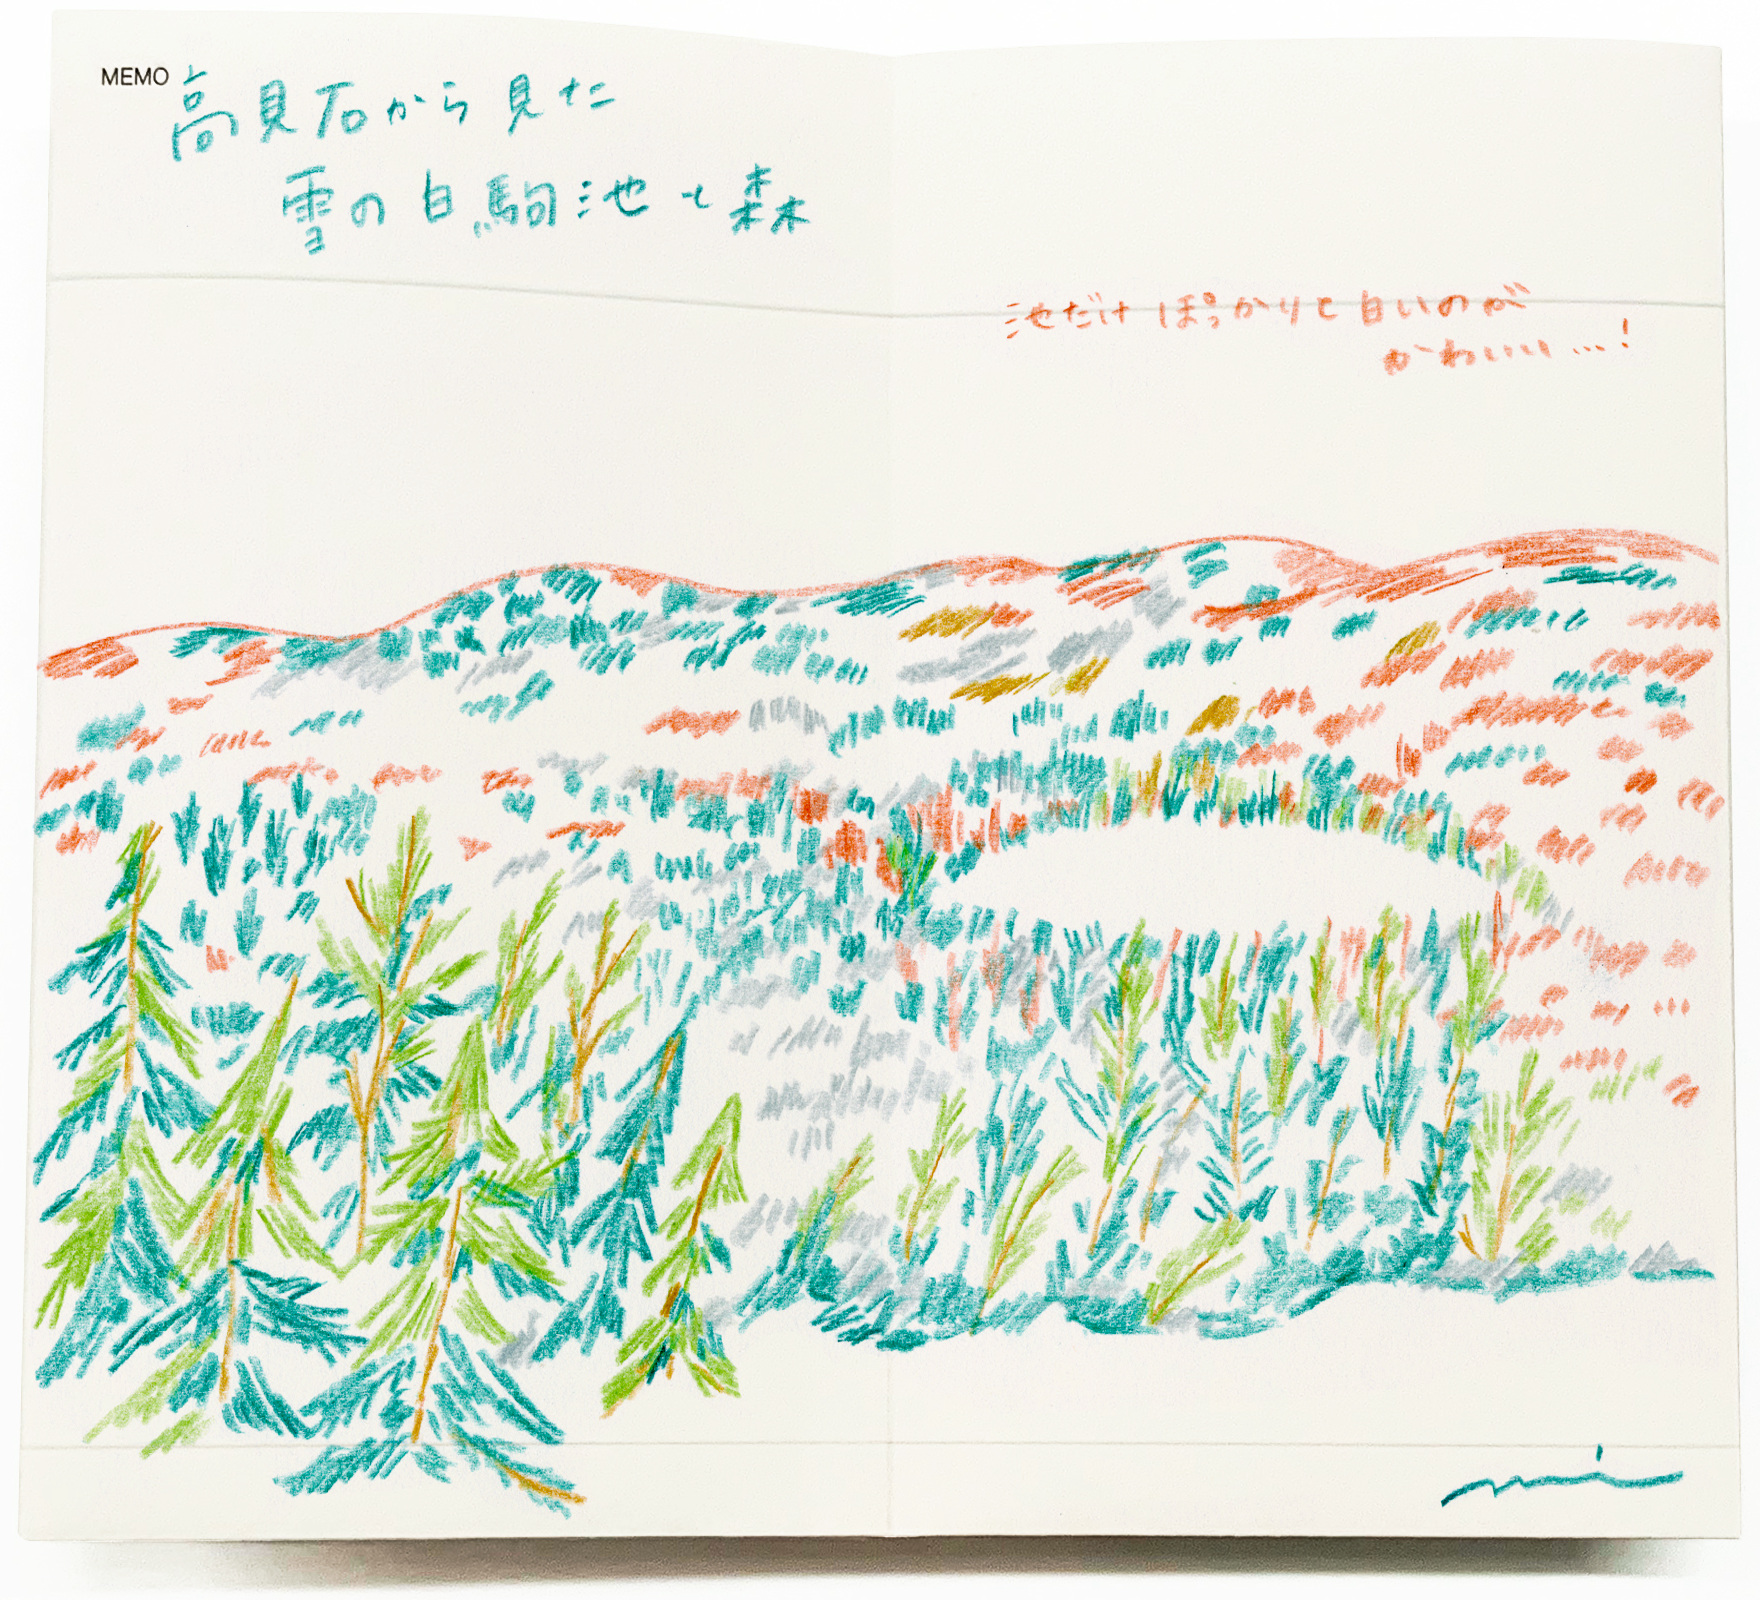 MEMO
高見石から見た
雪の白駒池と森
池だけぽっかりと白いのが
かわいい…!